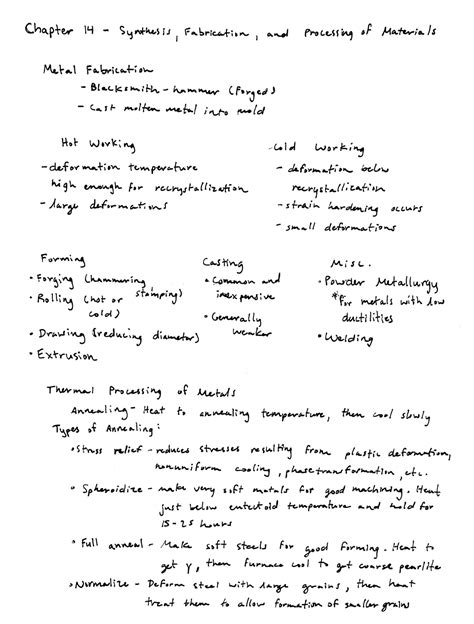 Chapter 14 - Synthesis, Fabrication, and Processing of Materials
Metal Fabrication
- Blacksmith - hammer (forged)
- Cast molten metal into mold
Hot Working
- deformation temperature
high enough for recrystallization
- large deformations
Cold Working
- deformation below
recrystallization
- strain hardening occurs
- small deformations
Forming
• Forging (hammering,
stamping)
• Rolling (hot or
cold)
• Drawing (reducing diameter)
• Extrusion
Casting
• Common and
inexpensive
• Generally
weaker
Misc.
• Powder Metallurgy
*For metals with low
ductilities
• Welding
Thermal Processing of Metals
Annealing - Heat to annealing temperature, then cool slowly
Types of Annealing:
• Stress relief - reduces stresses resulting from plastic deformation,
nonuniform cooling, phase transformation, etc.
• Spheroidize - make very soft metals for good machining. Heat
just below eutectoid temperature and hold for
15-25 hours
• Full anneal - Make soft steels for good forming. Heat to
get γ, then furnace cool to get coarse pearlite
• Normalize - Deform steel with large grains, then heat
treat them to allow formation of smaller grains